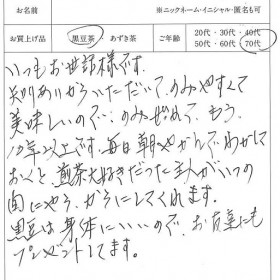 お名前
※ニックネーム・イニシャル・匿名も可
お買上げ品 黒豆茶・あずき茶 ご年齢 20代・30代・40代
50代・60代・70代
いつもお世話様です。
知りあいからいただいて、のみやすくて
美味しいので… のみ始めて、もう
10年以上です。毎日朝やかんでわかして
おくと、煎茶大好きだった主人がいつの
間にやら、がぶのみしてくれます。
黒豆は身体にいいので、お友達にも
プレゼントしてます。